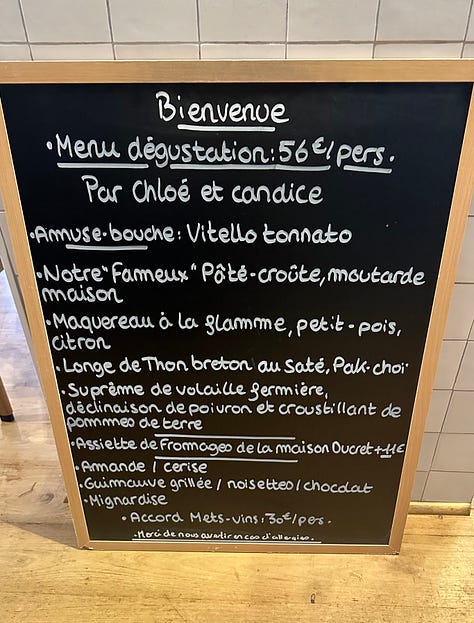 Bienvenue
• Menu dégustation: 56€/pers.
Par Chloé et candice
• Amuse-bouche: Vitello tonnato
• Notre "Fameux" Pâté-croûte, moutarde
maison
• Maquereau à la flamme, petit-pois,
citron
• Longe de Thon breton au Saté, Pak-choi
• Suprême de volaille fermière,
déclinaison de poivron et croustillant de
pommes de terre
• Assiette de Fromages de la maison Ducret +11€
• Amande / cerise
• Guimauve grillée / noisettes / chocolat
• Mignardise
• Accord Mets-vins: 30€/pers.
• Merci de nous avertir en cas d'allergies.